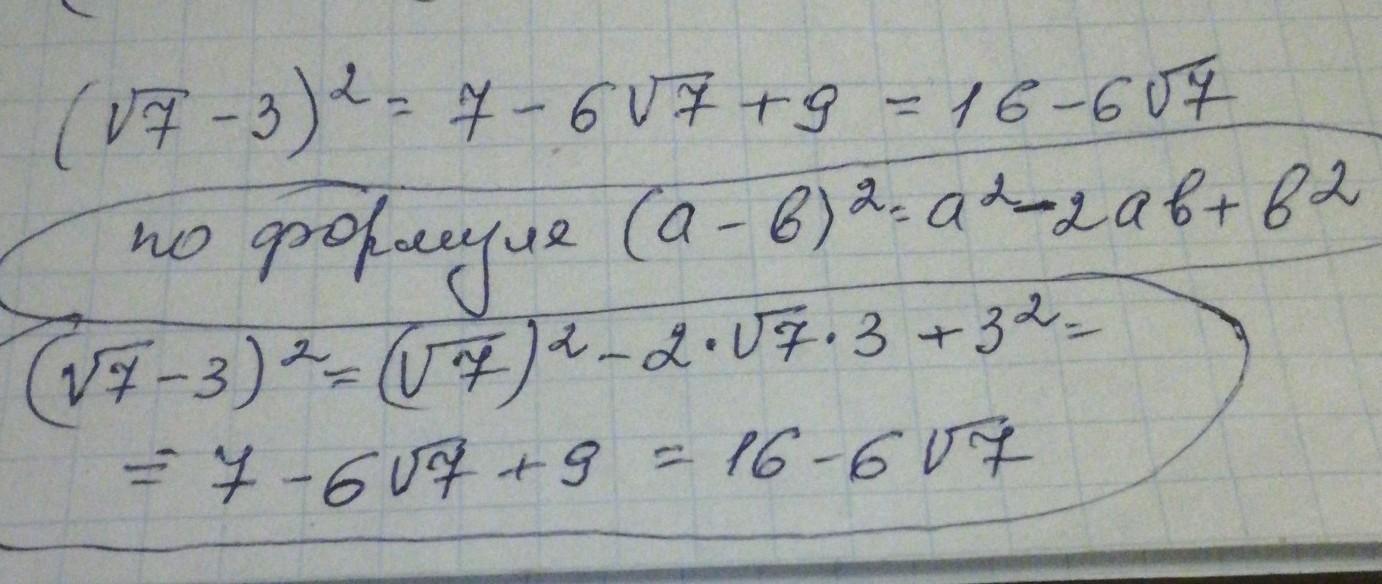 (√7 - 3)² = 7 - 6√7 + 9 = 16 - 6√7
по формуле (а - в)² = а² - 2ав + в²
(√7 - 3)² = (√7)² - 2·√7·3 + 3² =
= 7 - 6√7 + 9 = 16 - 6√7